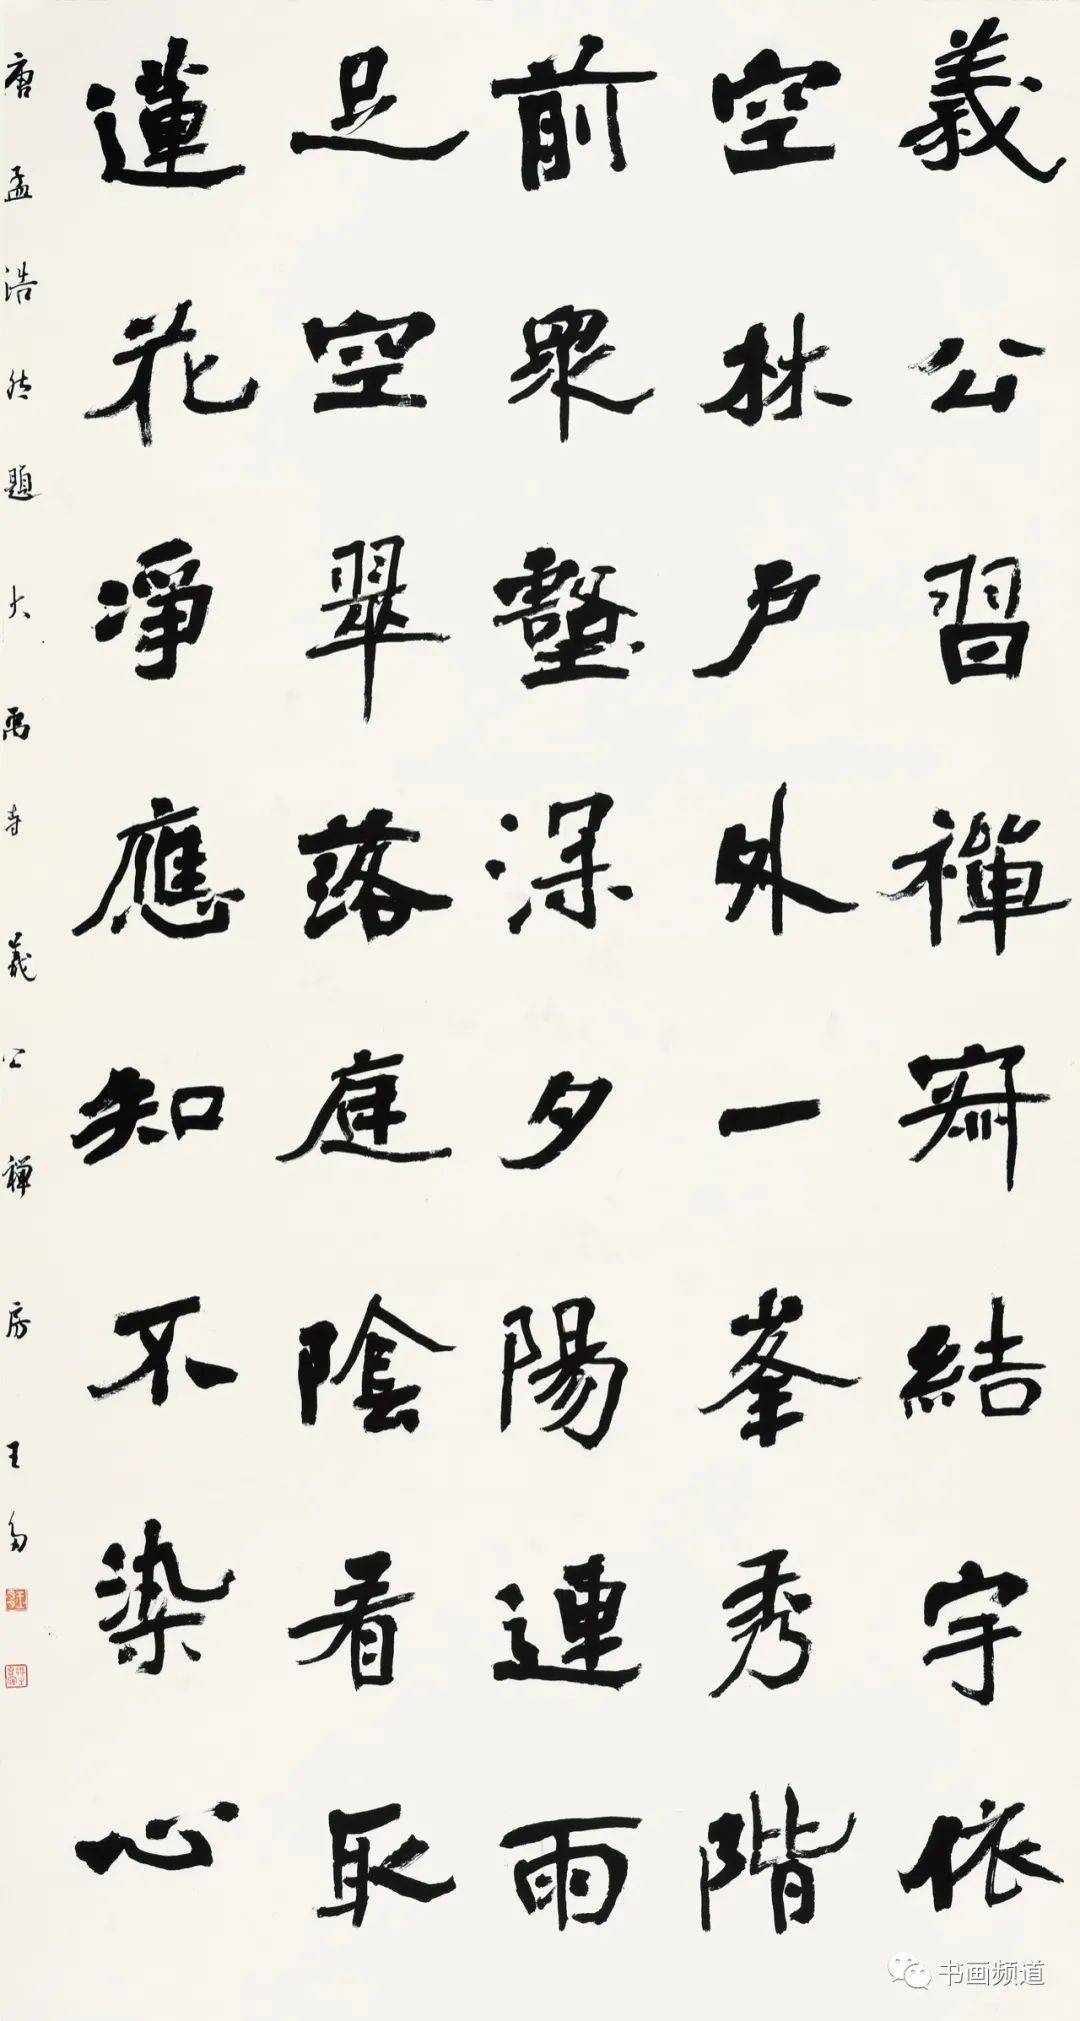 義公習禪寂結宇依
空林戶外一峯秀階
前眾壑深夕陽連雨
足空翠落庭陰看取
蓮花淨應知不染心
唐孟浩然題大禹寺義公禪房王
书画频道